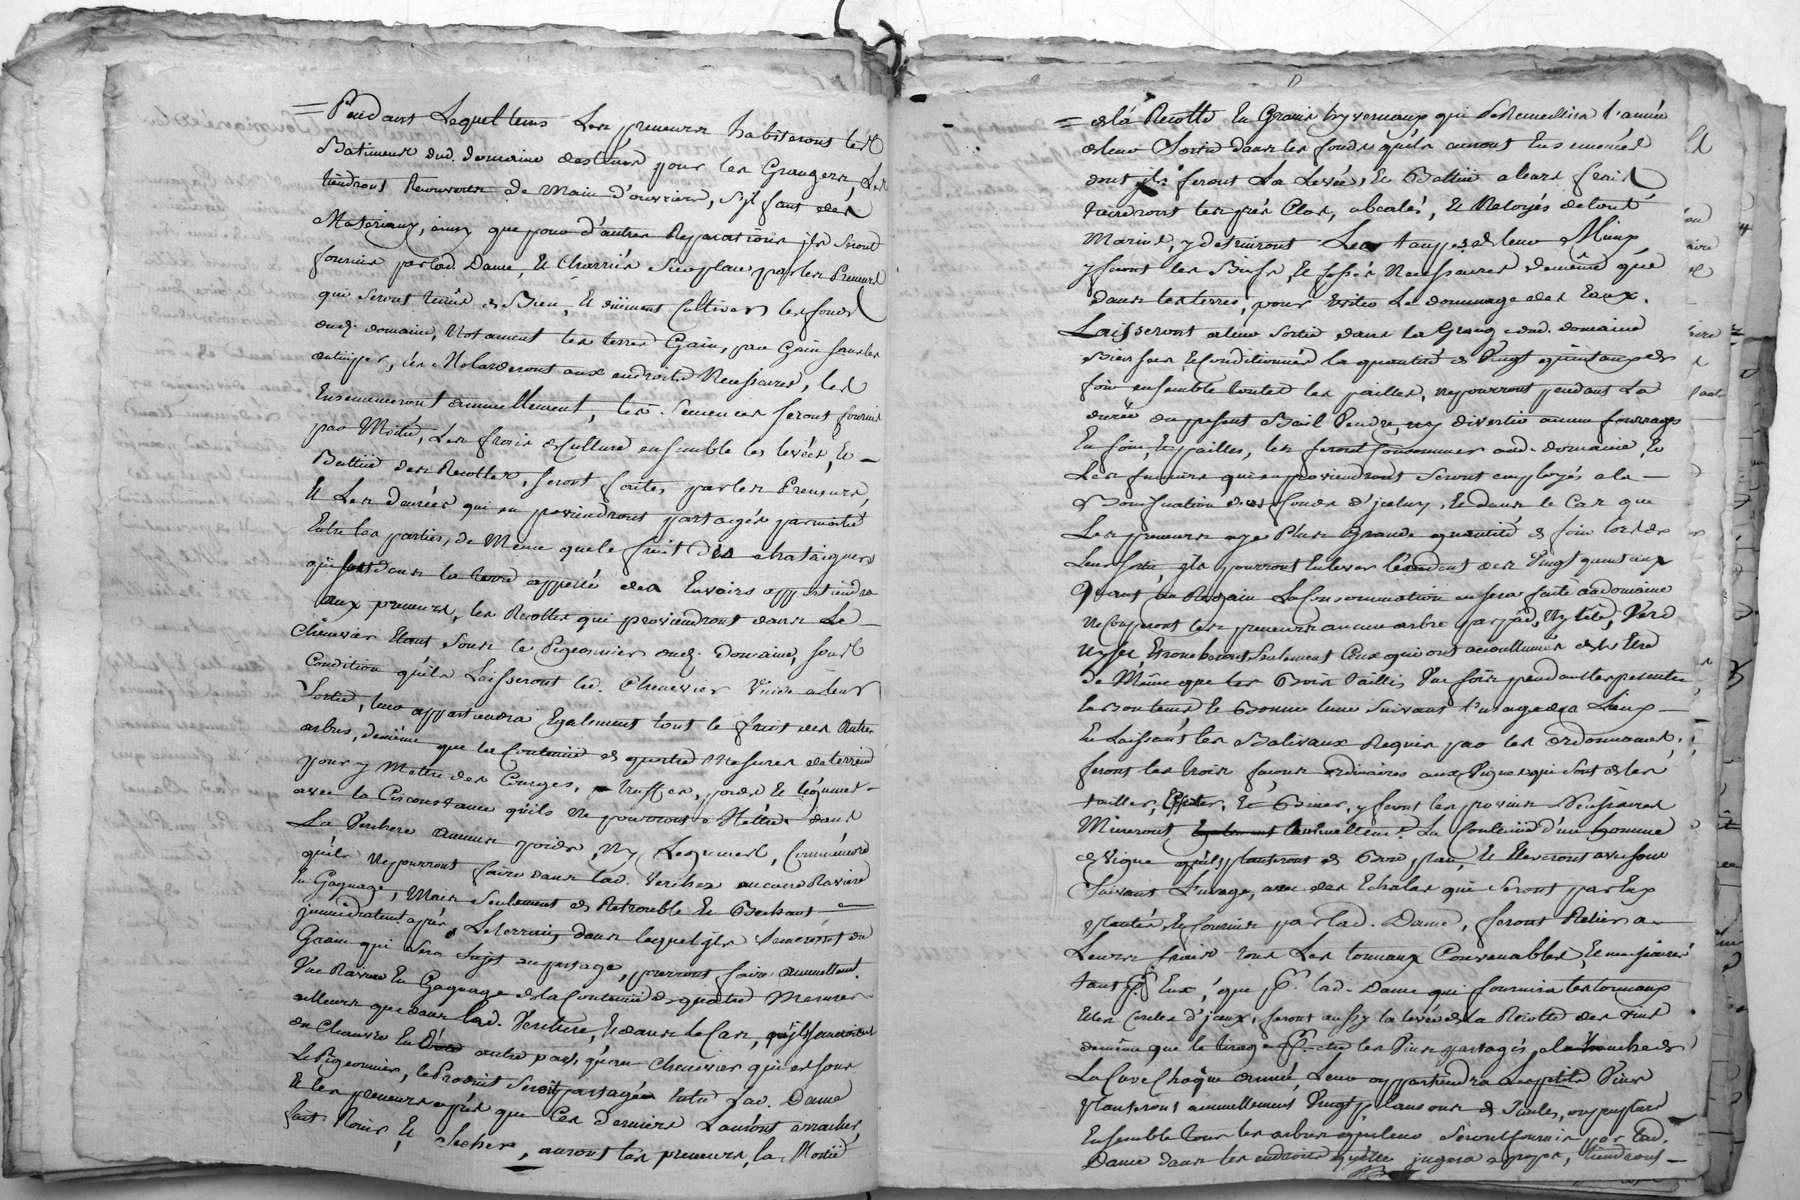 = Pendant Lequel tems Les preneurs habiteront les
Batiments dud. domaine destinés pour les Grangers, Les
tiendront Recouverts de main d'ouvriers, s'il faut des
Materiaux, ainsy que pour d'autres Reparations ils seront
fournis par lad. Dame, Et Charriés sur place par les Preneurs
qui seront tenûs de Bien, Et düement Cultiver les fonds
dud. domaine, Notament les terres Gain, par Gain sans les
antiper, les Molarderont aux endroits Necessaires, les
Ensemenceront annuellement, les Semences seront fournies
par Moitié, Les frais de Culture ensemble les levées, Et
Battüe des Recoltes, seront faites par les Preneurs,
Et Les danrées qui en proviendront partagés par moitié
Entre les parties, de Même que le fruit des chataigners
qui sont dans la terre appellé des Envoirs appartiendra
aux preneurs, les Recoltes qui proviendront dans Le
Chenevier Etant sous le Pigeonnier dud. domaine, sous
Condition qu'ils Laisseront led. Chenevier Vuide a leur
Sortie, leur appartiendra Egalement tout le fruit des Autres
arbres, de même que la Contenüe de quatre Mesures de terrein
pour y Mettre des Courges, truffes, poids et légumes
avec la Circonstance qu'ils Ne pourront Mettre dans
La Verchere aucuns poids, Ny Legumes, Comme aussi
qu'ils Ne pourront faire dans lad. Verchere aucune Raviere
En Gagnage, Mais Seulement de Retrouble Et Bechant
immediatement après, Le terrain dans lequel ils semeront du
Grain qui sera sujet au partage, pourront faire annuellement
Une Raviere En Gagnage de la Contenüe de quatre Mesures
ailleurs que dans lad. Verchere, Et dans le Cas, qu'ils semeroient
du Chanvre En autre part, qu'au Chenevier qui est sous
Le Pigeonnier, le Produit seroit partagé Entre lad. Dame
Et les preneurs après que Ces derniers L'auront arraché,
fait Rouir, Et Secher, auront les preneurs, la Moitié
= de la Recolte En Grains hyvernaux qui se Recueillira l'année
de leur Sortie dans les fonds qu'ils auront Ensemencés
dont ils feront La Levée, Et Battüe a leurs frais
tiendront les prés Clos, Et Netoyés de tout
Marine, y detruiront Les taupes de leur Mieux
y feront les Biefs, Et fossés Necessaires de même que
dans les terres, pour Eviter Le dommage des Eaux.
Laisseront a leur Sortie dans la Grange dud. domaine
Bien sec, Et Conditionné la quantité de Vingt quintaux de
foin ensemble toutes les pailles, ne pourront pendant La
durée du present Bail Vendre, ny divertir aucun fourrages
En foin, Et pailles, les feront Consommer aud. domaine, Et
Les fumiers qui en proviendront seront employés a la
Bonification des fonds d'iceluy, Et dans le Cas que
Les preneurs aye Plus Grande quantité de foin lors de
Leur Sortie ils pourront Enlever l'Exedent des Vingt quintaux
Quant au Regain La Consommation en sera faite au domaine
Ne Couperont les preneurs aucuns arbres par pied, Ny tête, Verd
Ny sec Etroncheront seulement Ceux qui ont accoutumés de l'Etre
de Même que les Bois taillis Une fois pendant les presentes
En Bon tems Et Bonne lune Suivant l'usage des Lieux
En Laissant les Balivaux Requis par les ordonnances,
feront les trois façons ordinaires aux Vignes qui sont de les
tailler, Et Biner, y feront les provins Necessaires
Mineront annuellement La Contenüe d'une homme
de Vigne qu'ils planteront de Bon plan, Et Eleveront avec soin
Suivant L'usage, avec des Echalas qui seront par Eux
plantés, Et fournis par lad. Dame, feront Relier a
Leurs frais tous Les tonneaux Convenables, Et necessaires
tant pr. Eux, que pr. lad. Dame qui fournira les tonneaux
Et les Cercles d'iceux, feront aussy la levée de la Recolte des vins
de même que le tirage pr. etre les Vins partagés a la tranche de
La Cuve Chaque année, Leur appartiendra Les petits Vins
planteront annuellement Vingt plansons de Saules, ou peupliers
Ensemble tous les arbres qui leur seront fournis par lad.
Dame dans les endroits qu'elle jugera a propos, tiendront